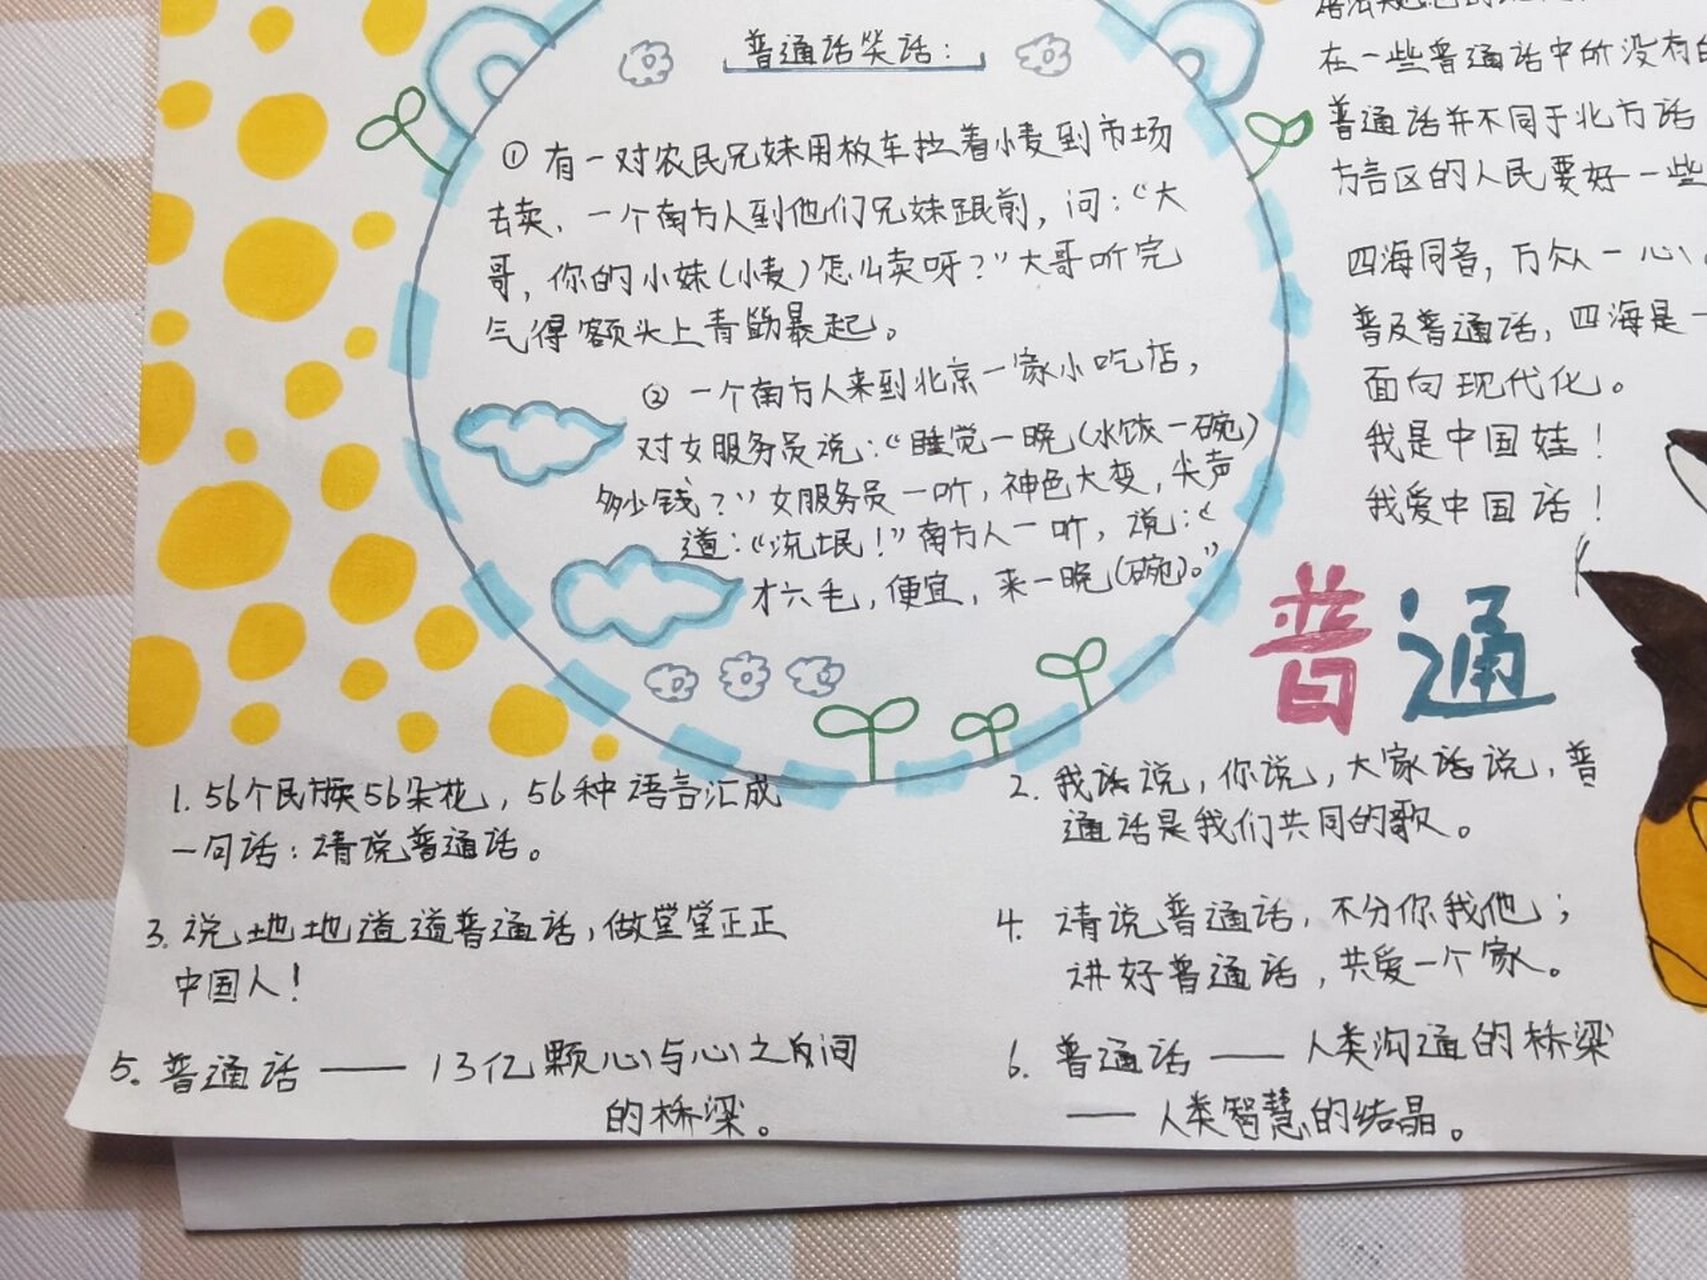 普通话笑话：
①有一对农民兄妹用板车拉着小麦到市场
去卖，一个南方人到他们兄妹跟前，问：“大
哥，你的小妹（小麦）怎么卖呀？”大哥听完
气得额头上青筋暴起。
②一个南方人来到北京一家小吃店，
对女服务员说：“睡觉一晚（水饺一碗）
多少钱？”女服务员一听，神色大变，尖声
道：“流氓！”南方人一听，说：“
才六毛，便宜，来一晚（碗）。”
在一些普通话中所没有的
普通话并不同于北方话
方言区的人民要好一些
四海同音，万众一心
普及普通话，四海是一
面向现代化。
我是中国娃！
我爱中国话！
普通
1. 56个民族56朵花，56种语言汇成
一句话：请说普通话。
2. 我话说，你说，大家话说，普
通话是我们共同的歌。
3. 说地地道道普通话，做堂堂正正
中国人！
4. 请说普通话，不分你我他；
讲好普通话，共爱一个家。
5. 普通话——13亿颗心与心之间
的桥梁。
6. 普通话——人类沟通的桥梁
——人类智慧的结晶。